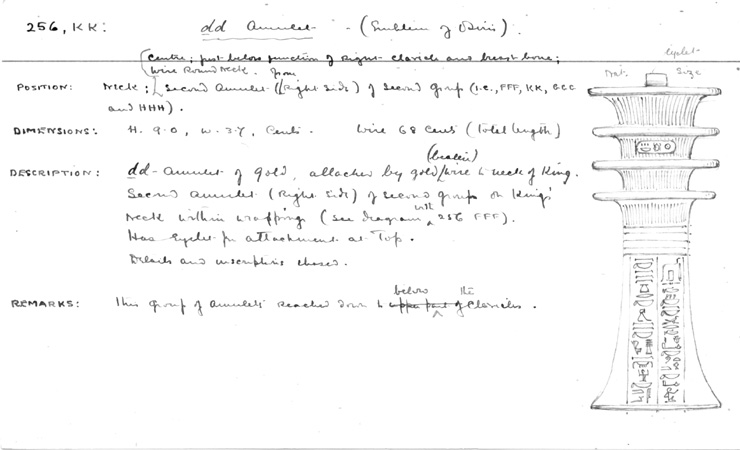 256, KK: dd Amulet - (Emblem of Osiris).
(Centre; just below junction of Right Clavicle and breast bone;
wire Round Neck. from
POSITION: Neck; Second Amulet (Right Side) of Second group (i.e., FFF, KK, GGG
and HHH).
DIMENSIONS: H. 9.0, W. 3.7, Cents. Wire 68 cents (Total length)
(beaten)
DESCRIPTION: dd-amulet of gold, attached by gold wire to neck of King.
Second amulet (Right Side) of Second group on King's
Neck within wrappings (see diagram with 256 FFF).
Has Eyelet for attachment at Top.
Details and inscriptions chased.
below the
REMARKS: This group of amulets reached down to upper part of Clavicles.
eyelet
Nat. Size